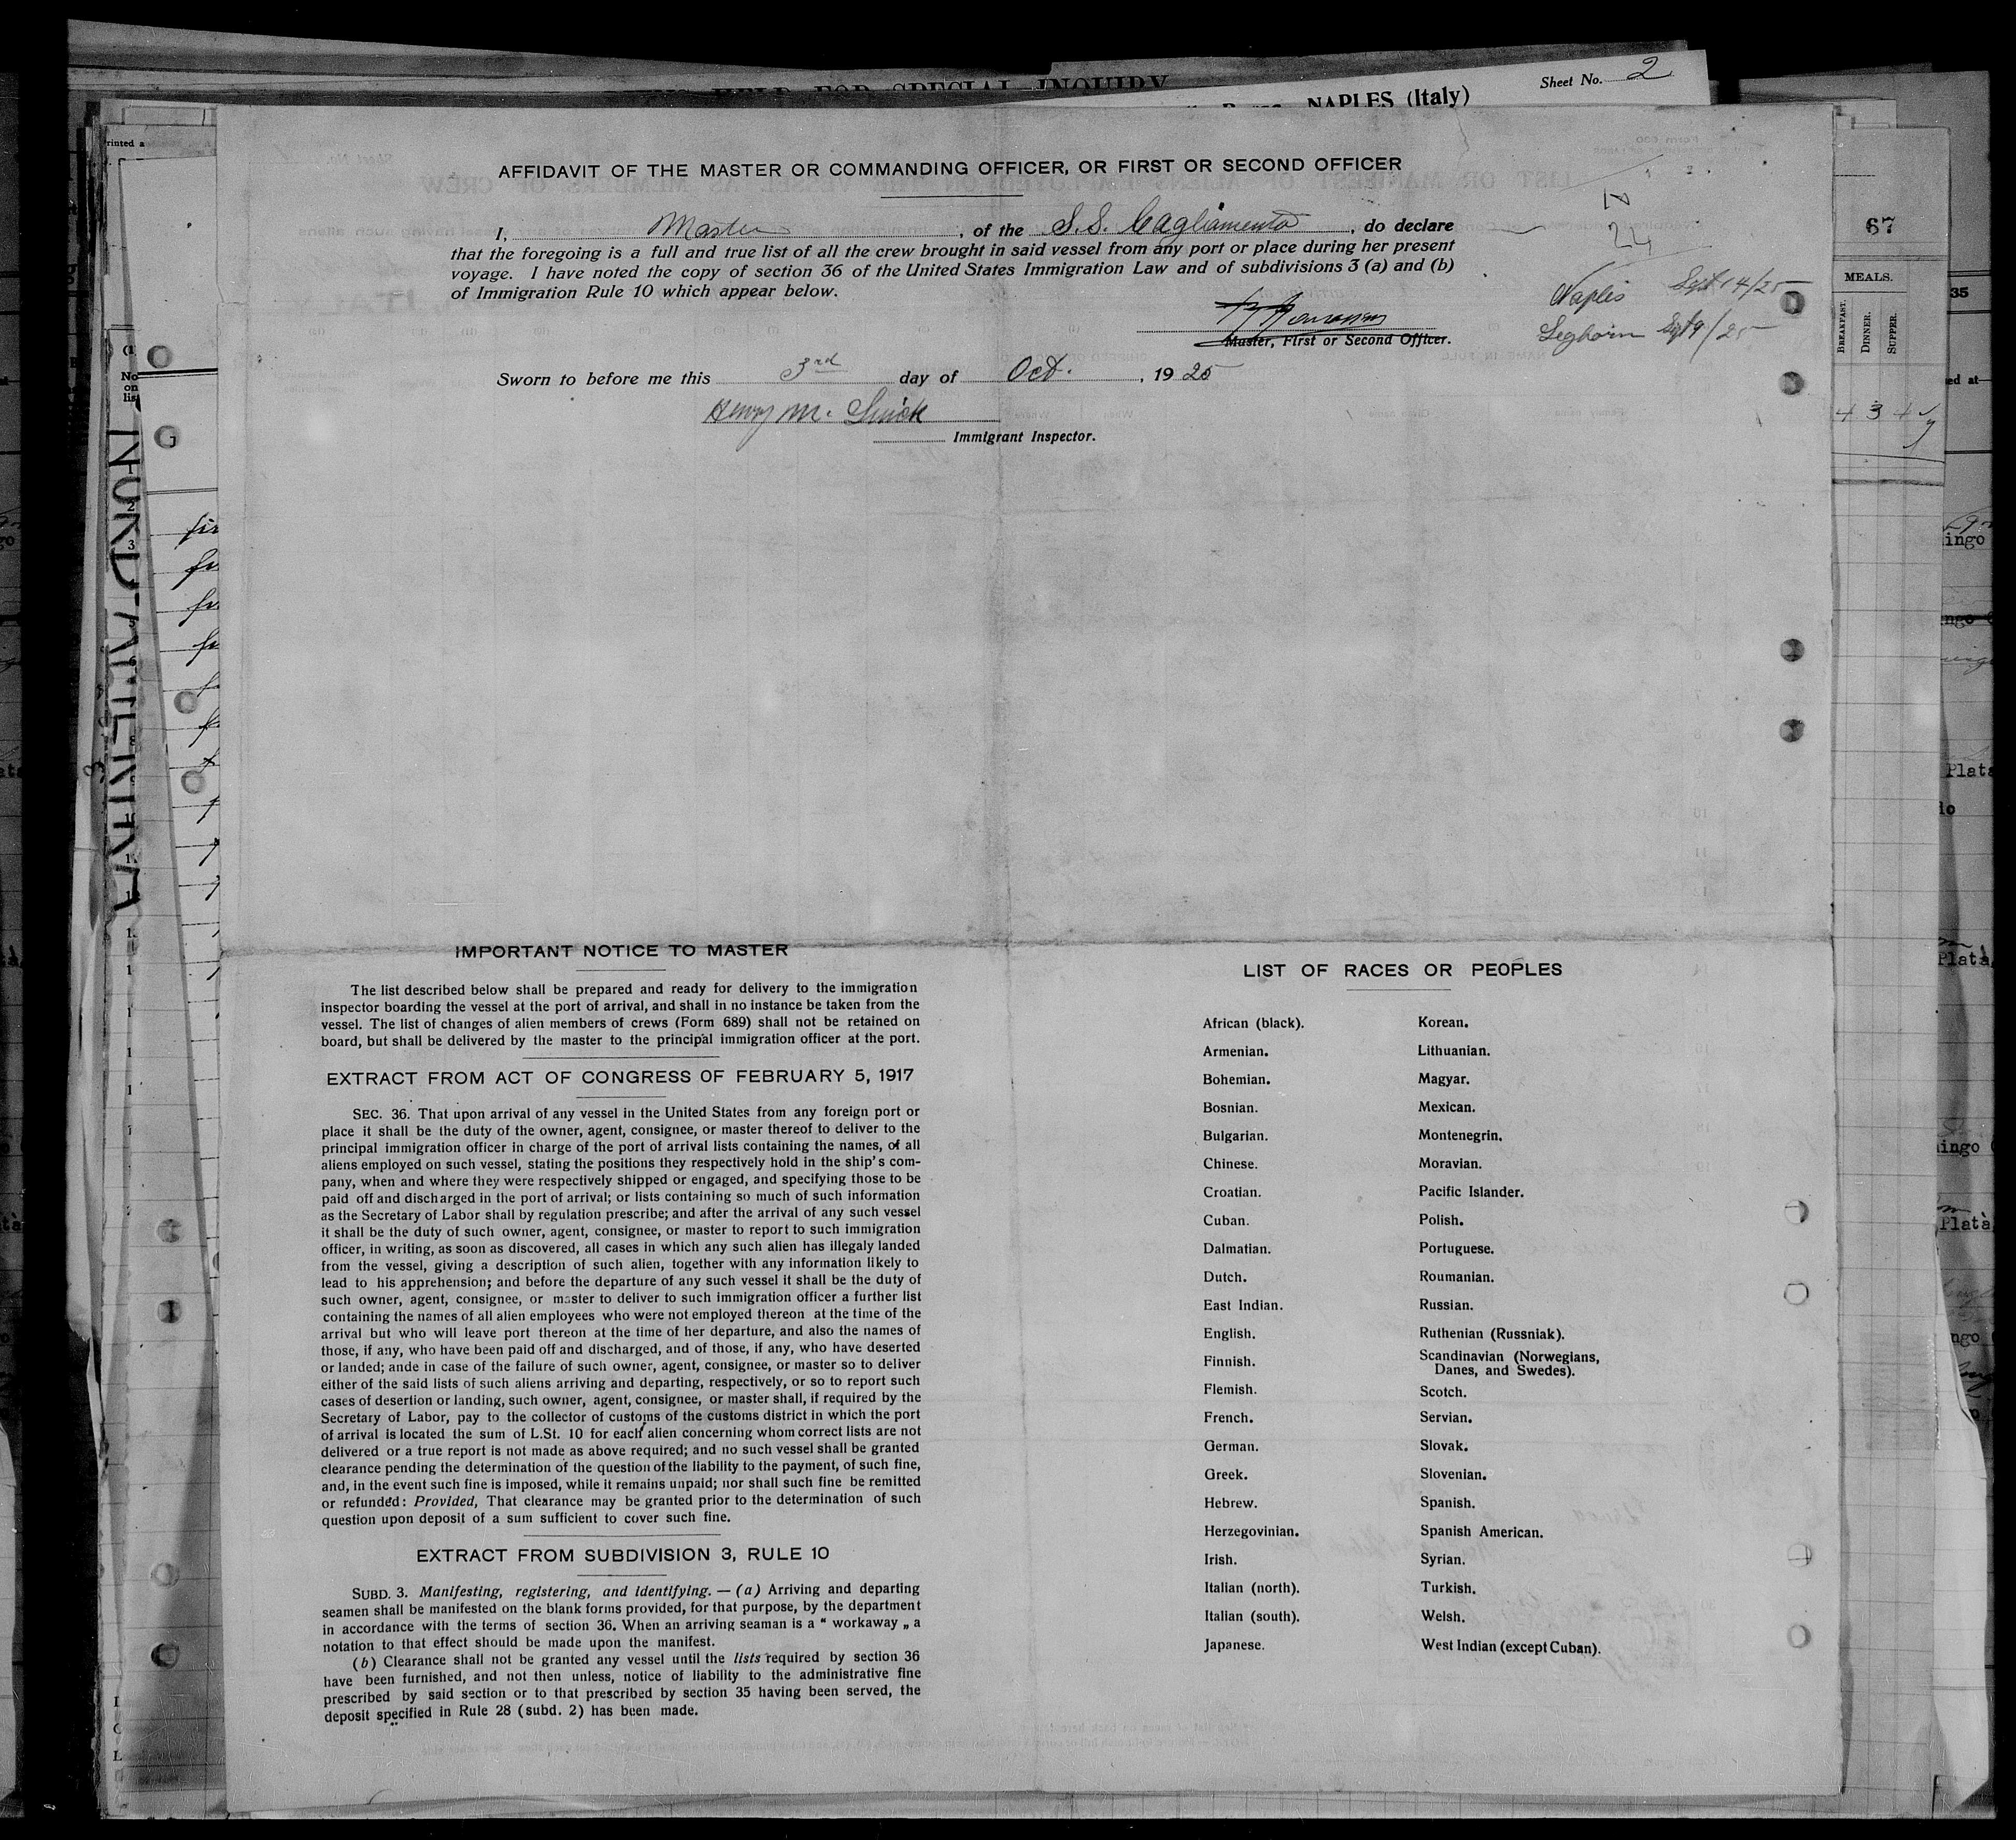 Sheet No. 2
NAPLES (Italy)
AFFIDAVIT OF THE MASTER OR COMMANDING OFFICER, OR FIRST OR SECOND OFFICER
I, Master, of the S.S. Cagliamento, do declare
that the foregoing is a full and true list of all the crew brought in said vessel from any port or place during her present
voyage. I have noted the copy of section 36 of the United States Immigration Law and of subdivisions 3 (a) and (b)
of Immigration Rule 10 which appear below.
Master, First or Second Officer.
24
Naples Sept 14/25
Leghorn Sept 9/25
Sworn to before me this 3rd day of Oct., 1925
Henry M.
Immigrant Inspector.
67
MEALS.
BREAKFAST.
DINNER.
SUPPER.
IMPORTANT NOTICE TO MASTER
The list described below shall be prepared and ready for delivery to the immigration
inspector boarding the vessel at the port of arrival, and shall in no instance be taken from the
vessel. The list of changes of alien members of crews (Form 689) shall not be retained on
board, but shall be delivered by the master to the principal immigration officer at the port.
EXTRACT FROM ACT OF CONGRESS OF FEBRUARY 5, 1917
SEC. 36. That upon arrival of any vessel in the United States from any foreign port or
place it shall be the duty of the owner, agent, consignee, or master thereof to deliver to the
principal immigration officer in charge of the port of arrival lists containing the names, of all
aliens employed on such vessel, stating the positions they respectively hold in the ship's com-
pany, when and where they were respectively shipped or engaged, and specifying those to be
paid off and discharged in the port of arrival; or lists containing so much of such information
as the Secretary of Labor shall by regulation prescribe; and after the arrival of any such vessel
it shall be the duty of such owner, agent, consignee, or master to report to such immigration
officer, in writing, as soon as discovered, all cases in which any such alien has illegaly landed
from the vessel, giving a description of such alien, together with any information likely to
lead to his apprehension; and before the departure of any such vessel it shall be the duty of
such owner, agent, consignee, or master to deliver to such immigration officer a further list
containing the names of all alien employees who were not employed thereon at the time of the
arrival but who will leave port thereon at the time of her departure, and also the names of
those, if any, who have been paid off and discharged, and of those, if any, who have deserted
or landed; ande in case of the failure of such owner, agent, consignee, or master so to deliver
either of the said lists of such aliens arriving and departing, respectively, or so to report such
cases of desertion or landing, such owner, agent, consignee, or master shall, if required by the
Secretary of Labor, pay to the collector of customs of the customs district in which the port
of arrival is located the sum of L.St. 10 for each alien concerning whom correct lists are not
delivered or a true report is not made as above required; and no such vessel shall be granted
clearance pending the determination of the question of the liability to the payment, of such fine,
and, in the event such fine is imposed, while it remains unpaid; nor shall such fine be remitted
or refunded: Provided, That clearance may be granted prior to the determination of such
question upon deposit of a sum sufficient to cover such fine.
EXTRACT FROM SUBDIVISION 3, RULE 10
SUBD. 3. Manifesting, registering, and identifying. — (a) Arriving and departing
seamen shall be manifested on the blank forms provided, for that purpose, by the department
in accordance with the terms of section 36. When an arriving seaman is a “ workaway „ a
notation to that effect should be made upon the manifest.
(b) Clearance shall not be granted any vessel until the lists required by section 36
have been furnished, and not then unless, notice of liability to the administrative fine
prescribed by said section or to that prescribed by section 35 having been served, the
deposit specified in Rule 28 (subd. 2) has been made.
LIST OF RACES OR PEOPLES
African (black). Korean.
Armenian. Lithuanian.
Bohemian. Magyar.
Bosnian. Mexican.
Bulgarian. Montenegrin.
Chinese. Moravian.
Croatian. Pacific Islander.
Cuban. Polish.
Dalmatian. Portuguese.
Dutch. Roumanian.
East Indian. Russian.
English. Ruthenian (Russniak).
Finnish. Scandinavian (Norwegians,
Danes, and Swedes).
Flemish. Scotch.
French. Servian.
German. Slovak.
Greek. Slovenian.
Hebrew. Spanish.
Herzegovinian. Spanish American.
Irish. Syrian.
Italian (north). Turkish.
Italian (south). Welsh.
Japanese. West Indian (except Cuban).